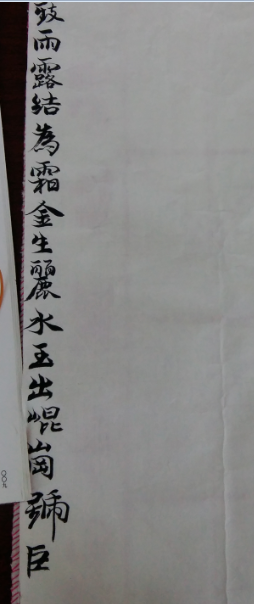 致雨露結為霜金生麗水玉出崐崗號巨